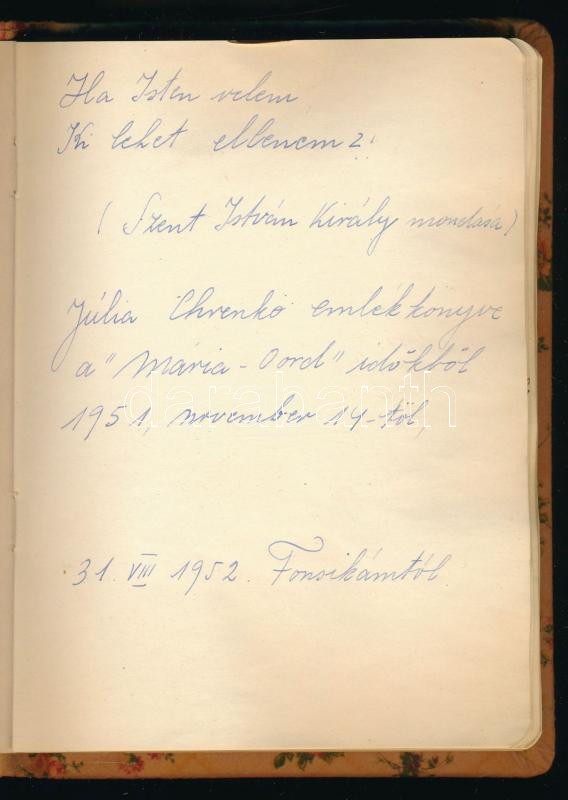 Ha Isten velem
Ki lehet ellenem?!
(Szent István Király mondása)
Júlia Chrenkó emlékkönyve
a "Mária-Oord" időkből
1951, november 14-től,
darabanth.com
31. VIII 1952. Fonsikámtól.